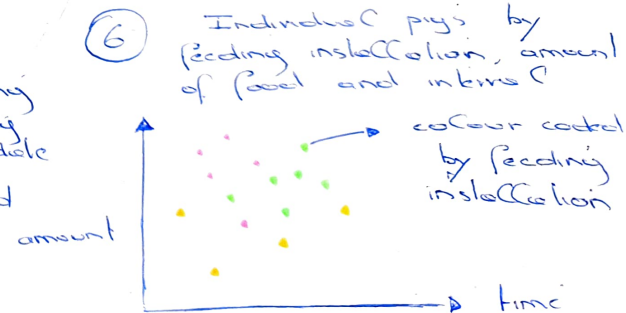 6
Individual pigs by
feeding installation, amount
of food and interval
colour coded
by feeding
installation
amount
time